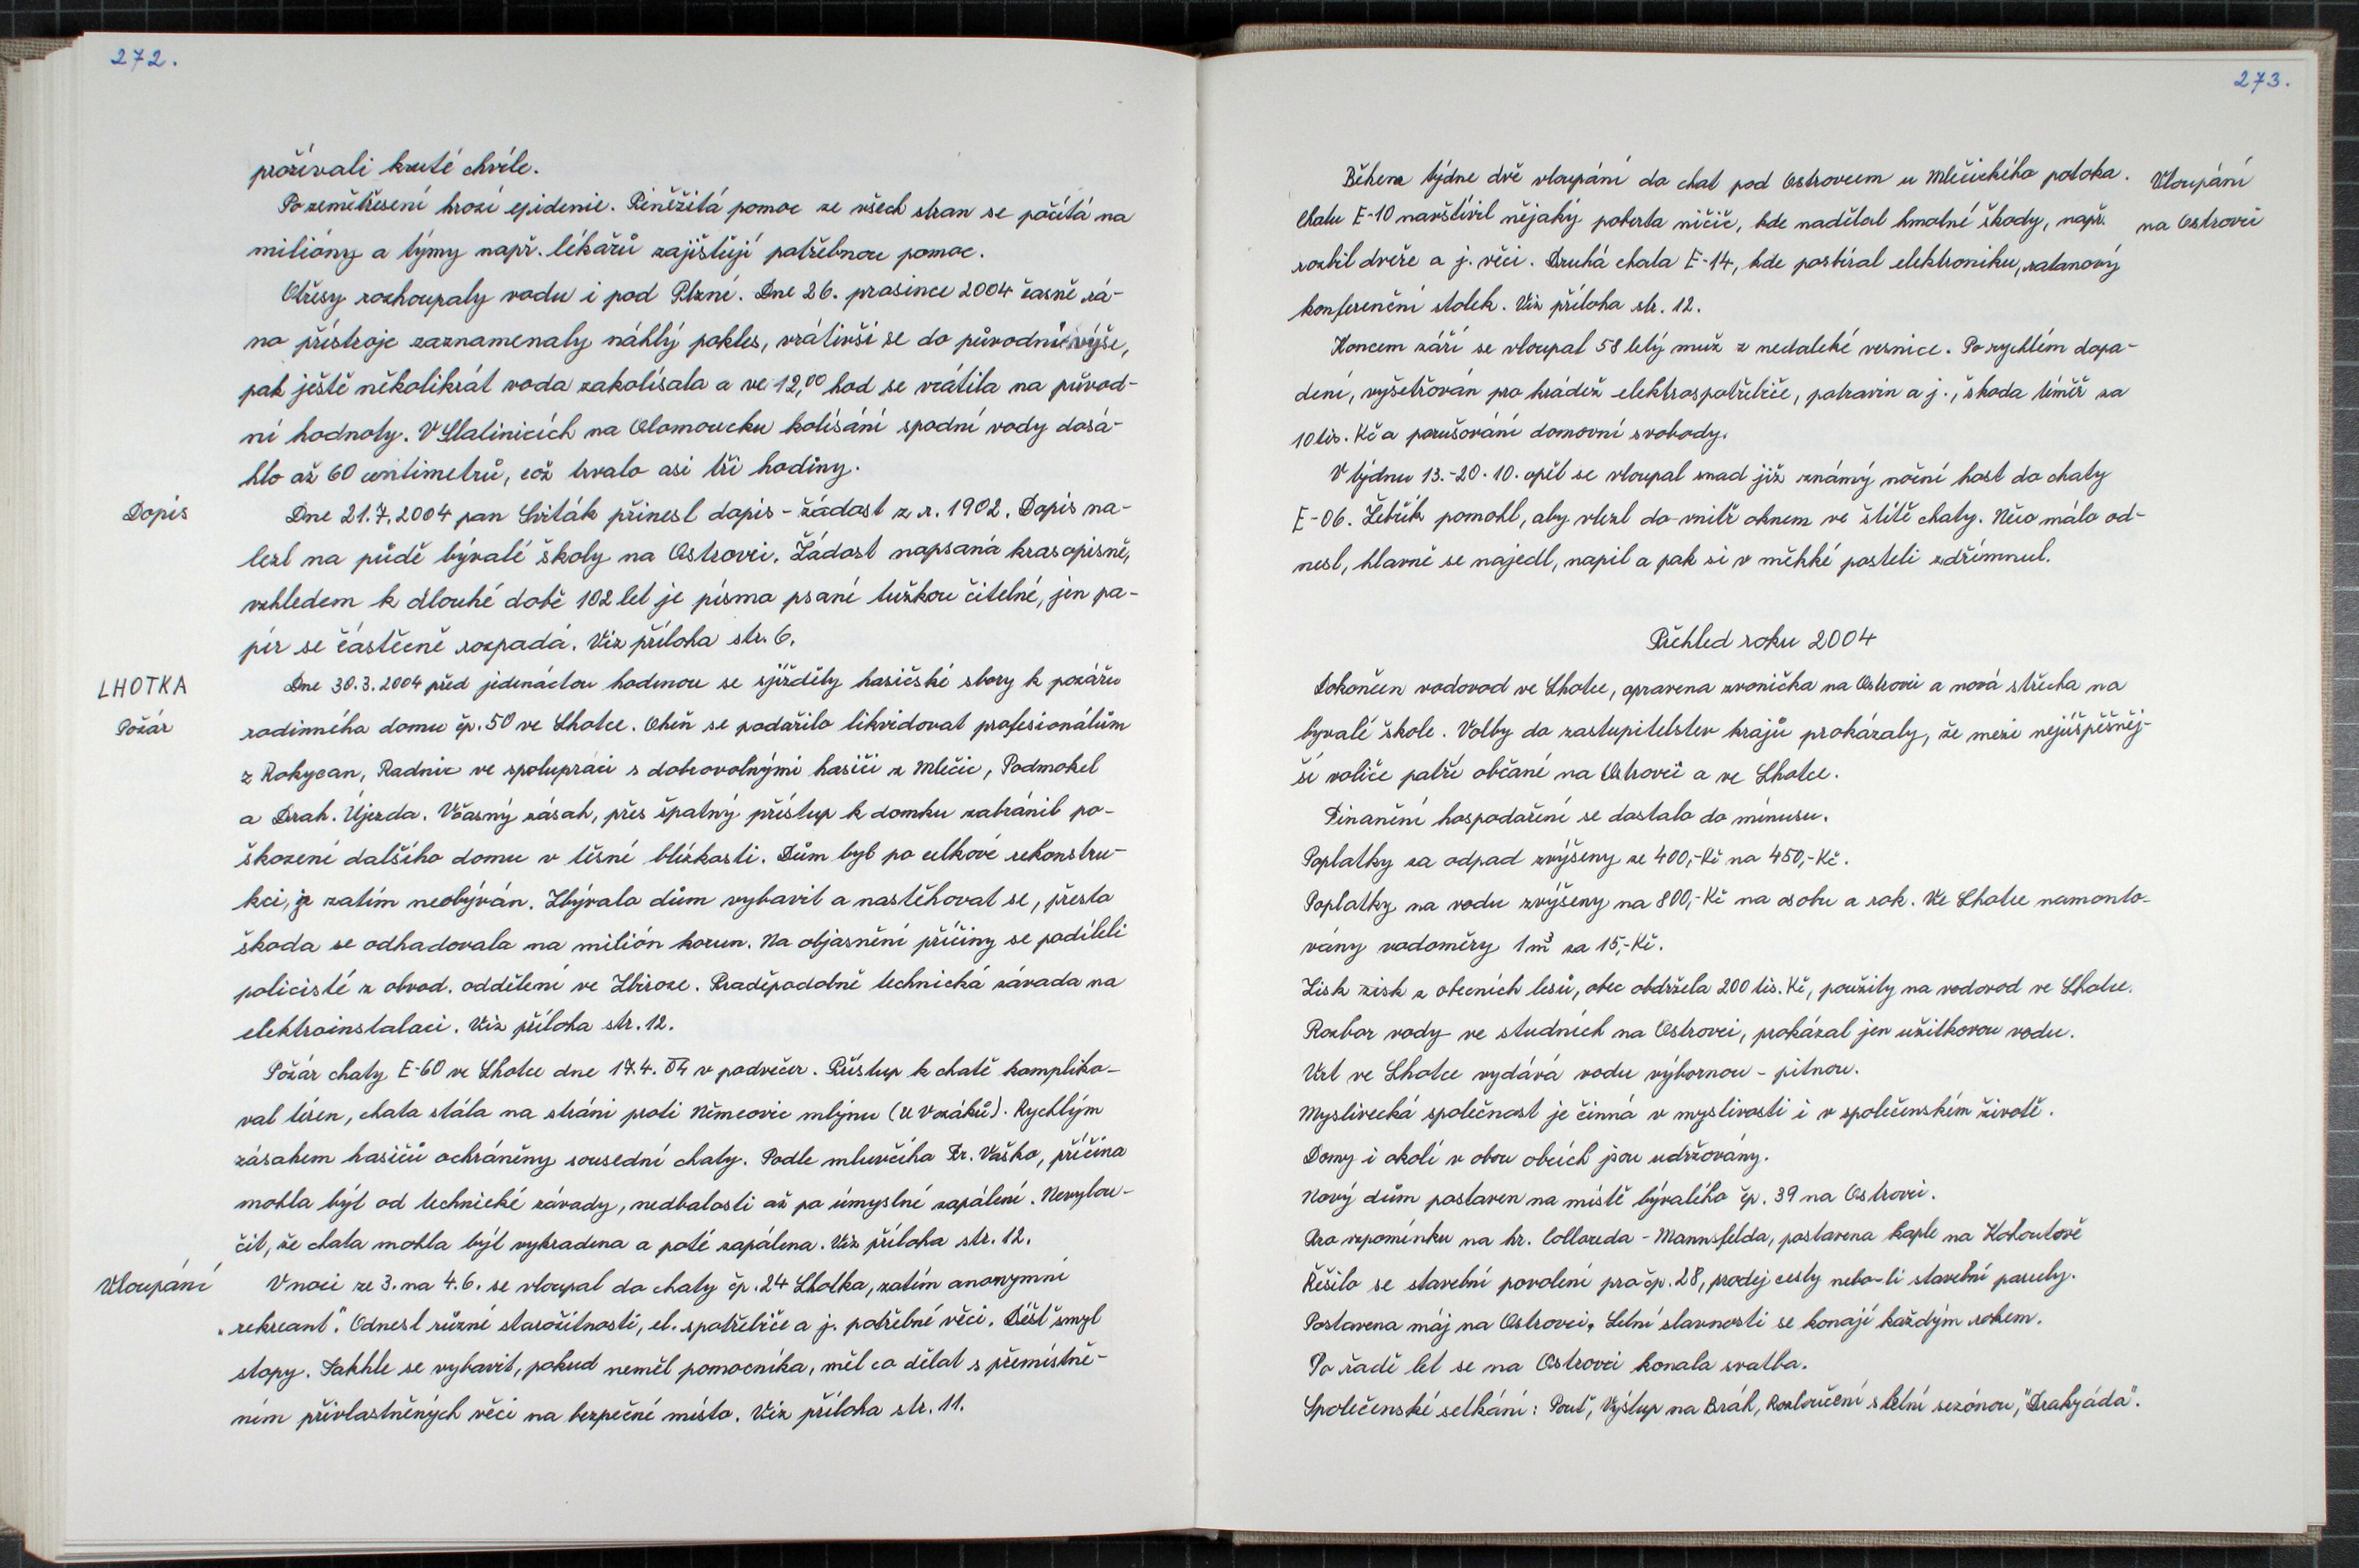 272.
prožívali kruté chvíle.
Po zemětřesení hrozí epidemie. Peněžitá pomoc ze všech stran se počítá na
milióny a týmy např. lékařů zajišťují potřebnou pomoc.
Otřesy rozhoupaly vodu i pod Plzní. Dne 26. prosince 2004 časně rá-
no přístroje zaznamenaly náhlý pokles, vrátivší se do původní výše,
pak ještě několikrát voda zakolísala a ve 12,00 hod se vrátila na původ-
ní hodnoty. V Slatinicích na Olomoucku kolísání spodní vody dosá-
hlo až 60 centimetrů, což trvalo asi tři hodiny.
Dopis
Dne 21.7.2004 pan Sviták přinesl dopis - žádost z r. 1902. Dopis na-
lezl na půdě bývalé školy na Ostrovci. Žádost napsaná krasopisně,
vzhledem k dlouhé době 102 let je písmo psané tužkou čitelné, jen pa-
pír se částěčně rozpadá. Viz příloha str. 6.
LHOTKA
Požár
Dne 30.3.2004 před jedenáctou hodinou se sjížděly hasičské sbory k požáru
rodinného domu čp. 50 ve Lhotce. Oheň se podařilo likvidovat profesionálům
z Rokycan, Radnic ve spolupráci s dobrovolnými hasiči z Mlečic, Podmokel
a Drah. Újezda. Včasný zásah, přes špatný přístup k domku zabránil po-
škození dalšího domu v těsné blízkosti. Dům byl po celkové rekonstru-
kci, je zatím neobýván. Zbývalo dům vybavit a nastěhovat se, přesto
škoda se odhadovala na milión korun. Na objasnění příčiny se podíleli
policisté z obvod. oddělení ve Zbiroze. Pravděpodobně technická závada na
elektroinstalaci. Viz příloha str. 12.
Požár chaty E-60 ve Lhotce dne 17.4. 04 v podvečer. Přístup k chatěompliko-
val terén, chata stála na stráni proti Němcovic mlýnu (U Vozáků). Rychlým
zásahem hasičů ochráněny sousední chaty. Podle mluvčího Tr. Vaško, příčina
mohla být od technické závady, nedbalosti až po úmyslné zapálení. Nevylou-
čit, že chata mohla být vykradena a poté zapálena. Viz příloha str. 12.
Vloupání
V noci ze 3. na 4.6. se vloupal do chaty čp. 24 Lhotka, zatím anonymní
„rekreant". Odnesl různé starožitnosti, el. spotřebiče a j. potřebné věci. Déšť smyl
stopy. Takhle se vybavit, pokud neměl pomocníka, měl co dělat s přemístně-
ním přivlastněných věcí na bezpečné místo. Viz příloha str. 11.
273.
Během týdne dvě vloupání do chat pod Ostrovcem u Mlečického potoka.
Vloupání
na Ostrovci
Chatu E-10 navštívil nějaký poberta ničič, kde nadělal hmotné škody, např.
rozbil dveře a j. věci. Druhá chata E-14, kde posbíral elektroniku, ratanový
konferenční stolek. Viz příloha str. 12.
Koncem září se vloupal 58 letý muž z nedaleké vesnice. Po rychlém dopa-
dení, vyšetřován pro krádež elektrospotřebiče, potravin a j., škoda téměř za
10 tis. Kč a porušování domovní svobody.
V týdnu 13.-20.10. opět se vloupal snad již známý noční host do chaty
E-06. Žebřík pomohl, aby vlezl do vnitř oknem ve štítě chaty. Něco málo od-
nesl, hlavně se najedl, napil a pak si v měkké posteli zdřímnul.
Přehled roku 2004
Dokončen vodovod ve Lhotce, opravena zvonička na Ostrovci a nová střecha na
bývalé škole. Volby do zastupitelstev krajů prokázaly, že mezi nejúspěšněj-
ší voliče patří občané na Ostrovci a ve Lhotce.
Finanční hospodaření se dostalo do mínusu.
Poplatky za odpad zvýšeny ze 400,-Kč na 450,-Kč.
Poplatky na vodu zvýšeny na 800,-Kč na osobu a rok. Ve Lhotce namonto-
vány vodoměry 1m³ za 15,-Kč.
Zisk zisk z obecních lesů, obec obdržela 200 tis. Kč, použity na vodovod ve Lhotce.
Rozbor vody ve studních na Ostrovci, prokázal jen užitkovou vodu.
Vrt ve Lhotce vydává vodu výbornou - pitnou.
Myslivecká společnost je činná v myslivosti i v společenském životě.
Domy i okolí v obou obcích jsou udržovány.
Nový dům postaven na místě bývalého čp. 39 na Ostrovci.
Pro vzpomínku na hr. Colloreda - Mannsfelda, postavena kaple na Kohoutově
Řešilo se stavební povolení pro čp. 28, prodej cesty nebo-li stavební parcely.
Postavena máj na Ostrovci, Letní slavnosti se konají každým rokem.
Po řadě let se na Ostrovci konala svatba.
Společenské setkání: Pouť, Výstup na Brák, Rozloučení s letní sezónou, "Drakyáda".